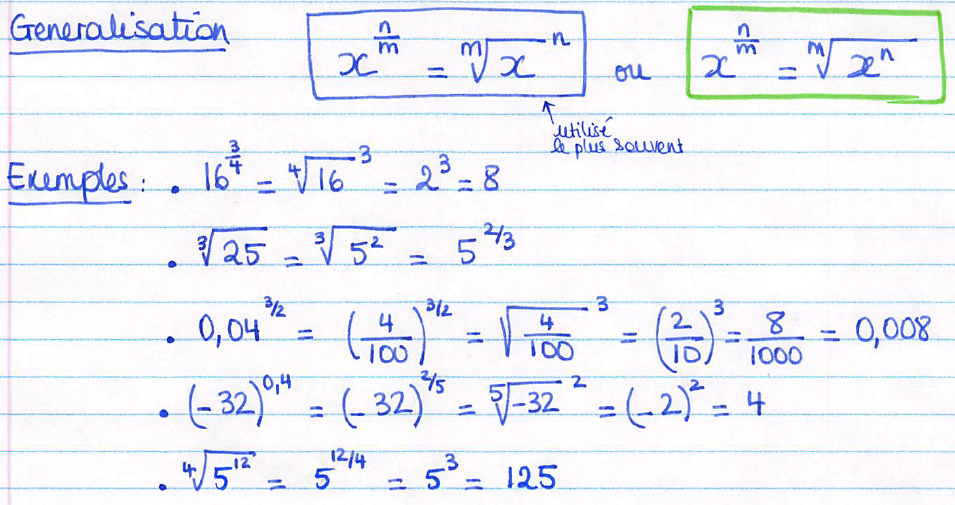 Generalisation x^(n/m) = ᵐ√x ⁿ ou x^(n/m) = ᵐ√(xⁿ)
↑ utilisé
le plus souvent
Exemples : • 16^(3/4) = ⁴√16 ³ = 2³ = 8
• ³√25 = ³√(5²) = 5^(2/3)
• 0,04^(3/2) = (4/100)^(3/2) = √(4/100) ³ = (2/10)³ = 8/1000 = 0,008
• (-32)^(0,4) = (-32)^(2/5) = ⁵√-32 ² = (-2)² = 4
• ⁴√(5¹²) = 5^(12/4) = 5³ = 125